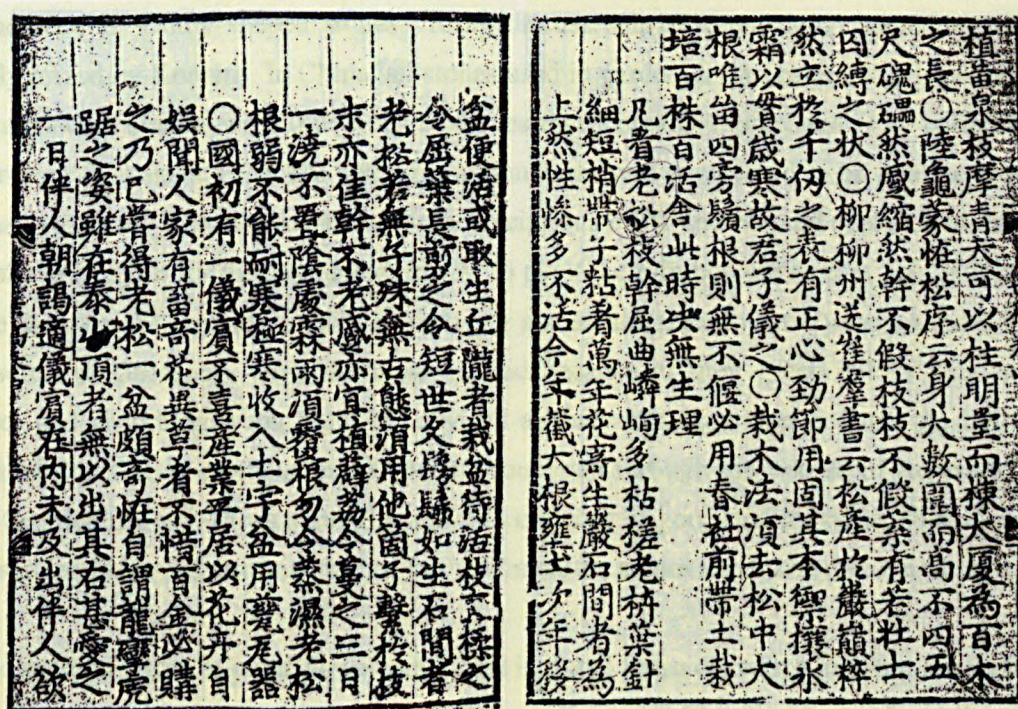 植黃泉枝摩青天可以柱明堂而棟大厦為百木
之長○陸龜蒙怪松序云身大數圍而高不四五
尺磈礧然蹙縮然幹不假枝枝不假柔有若壯士
囚縛之狀○柳柳州送崔羣書云松產於巖巔粹
然立於千仞之表有正心勁節用固其本禦攘氷
霜以貫歲寒故君子儀之○栽木法須去松中大
根唯留四旁鬚根則無不偃必用春社前帶土栽
培百株百活舍此時決無生理
凡看老松枝幹屈曲嶙峋多枯槎老枿葉針
細短梢帶子粘着萬年花寄生巖石間者為
上然性慘多不活今年截大根壅土次年移
盆便活或取生丘隴者栽盆待活枝下揉之
令屈葉長剪之令短世久髣髴如生石間者
老松若無子殊無古態須用他箇子繫於枝
末亦佳幹不老蹙亦宜植薜荔令蔓之三日
一澆不置陰處霖雨須覆根勿令蒸濕老松
根弱不能耐寒極寒收入土宇盆用甕瓦器
○國初有一儀賓不喜產業平居以花卉自
娛聞人家有畜奇花異草者不惜百金必購
之乃已甞得老松一盆頗奇怪自謂龍孿虎
踞之姿雖在泰山頂者無以出其右甚愛之
一日伴人朝謁適儀賓在內未及出伴人欲